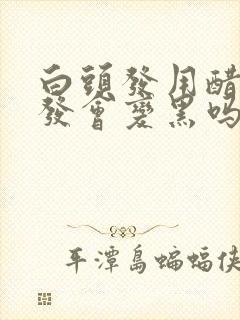 白頭發用醋
發會變黑嗎
平潭島蝙蝠俠